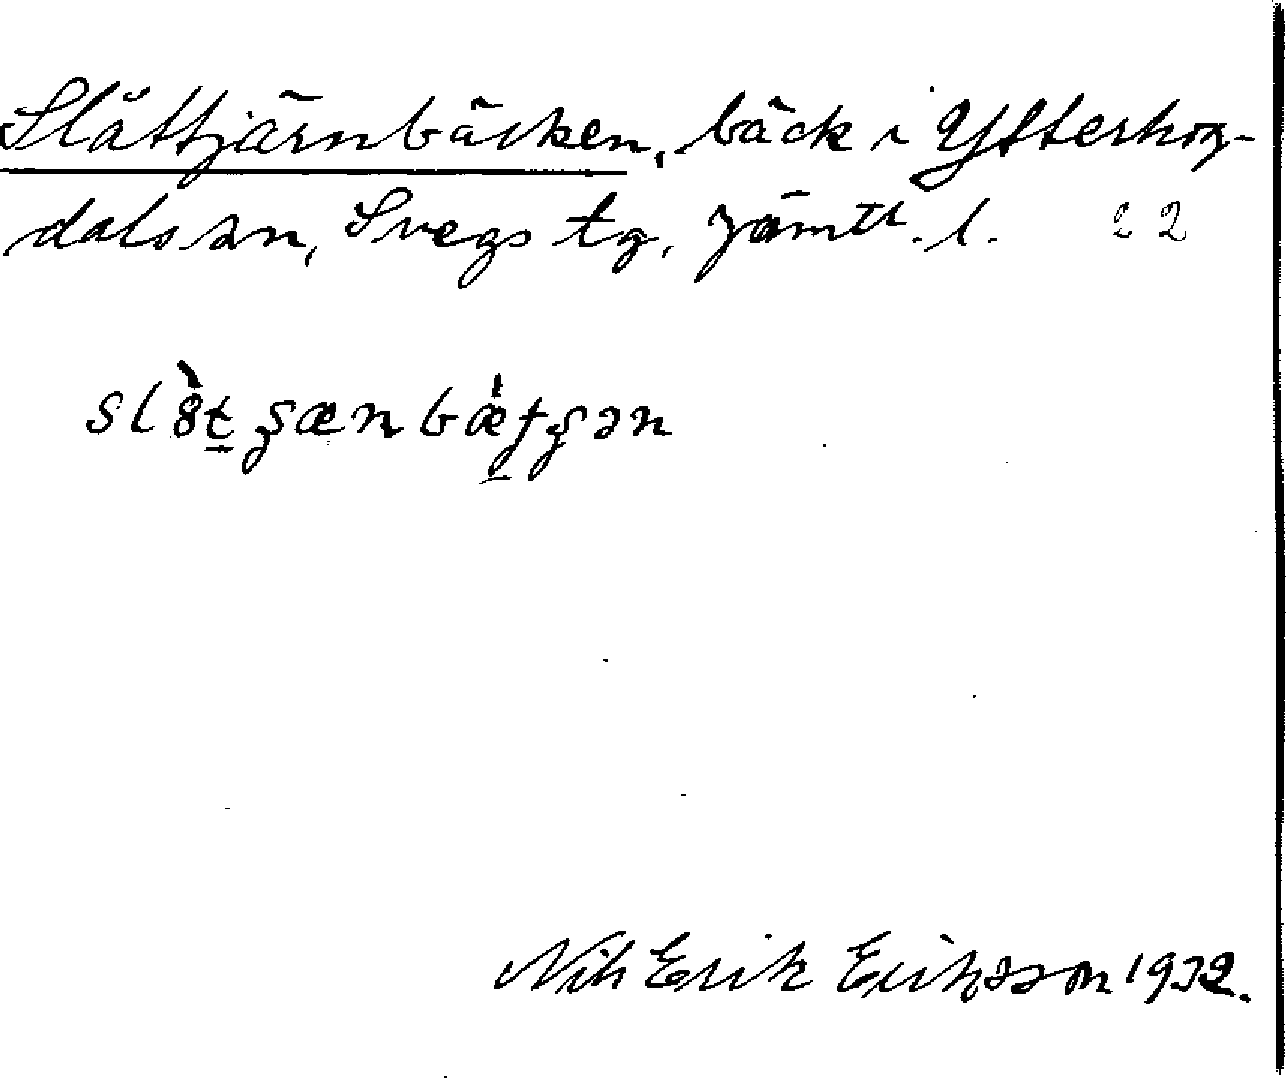 Slåttjärnbäcken, bäck i Ytterhog-
dals sn, Svegs tg, Jämtl. l. 22
Nils Erik Eriksson 1932.